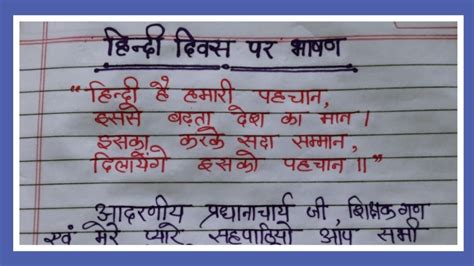 हिन्दी दिवस पर भाषण
"हिन्दी है हमारी पहचान,
इससे बढ़ता देश का मान।
इसका करके सदा सम्मान,
दिलायेंगे इसको पहचान॥"
आदरणीय प्रधानाचार्य जी, शिक्षकगण
एवं मेरे प्यारे सहपाठियो आप सभी